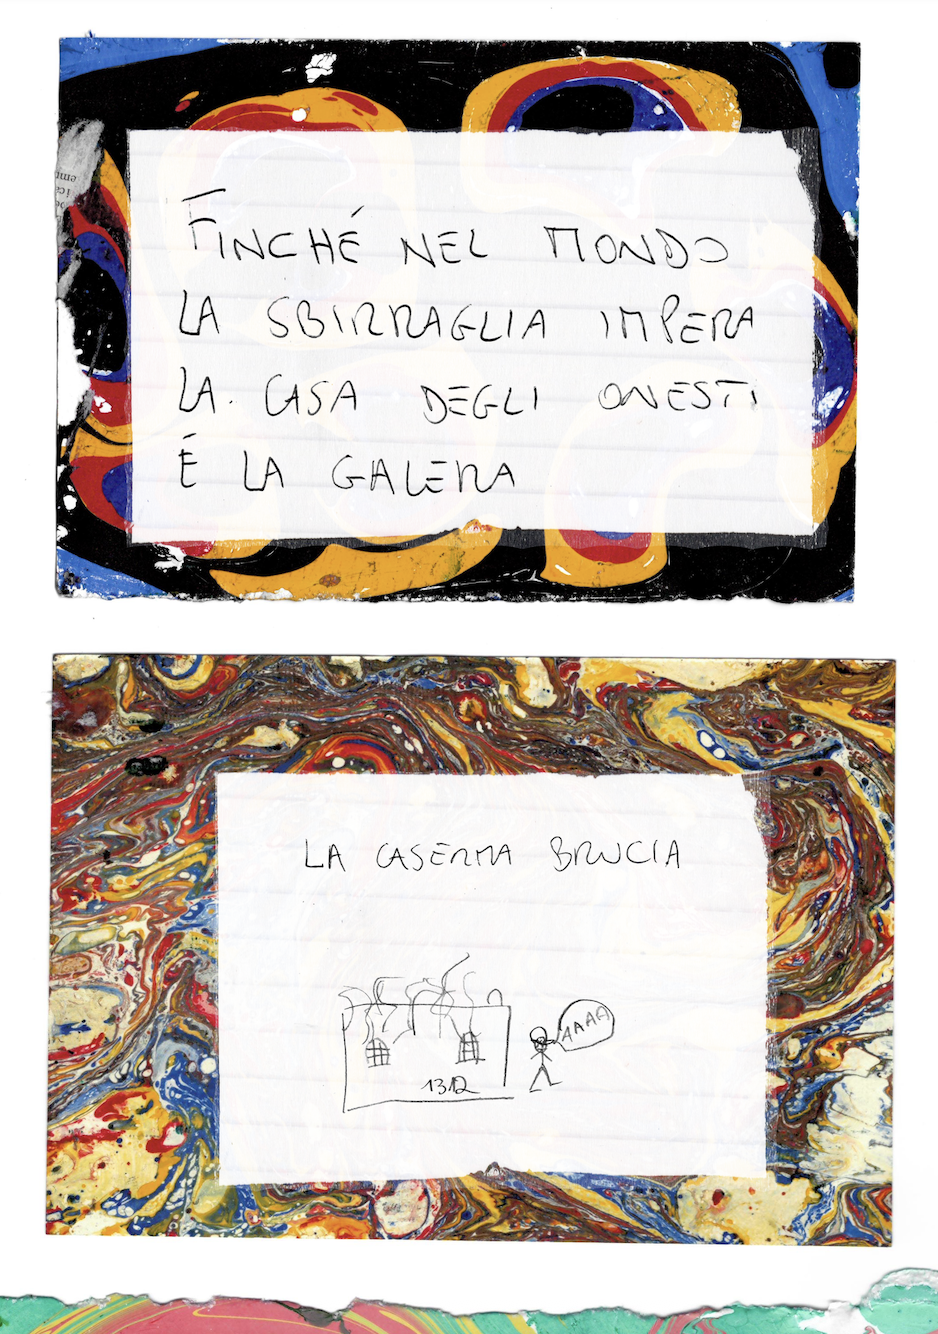 FINCHÉ NEL MONDO
LA SBIRRAGLIA IMPERA
LA CASA DEGLI ONESTI
É LA GALERA
LA CASERMA BRUCIA
AAAA
1312